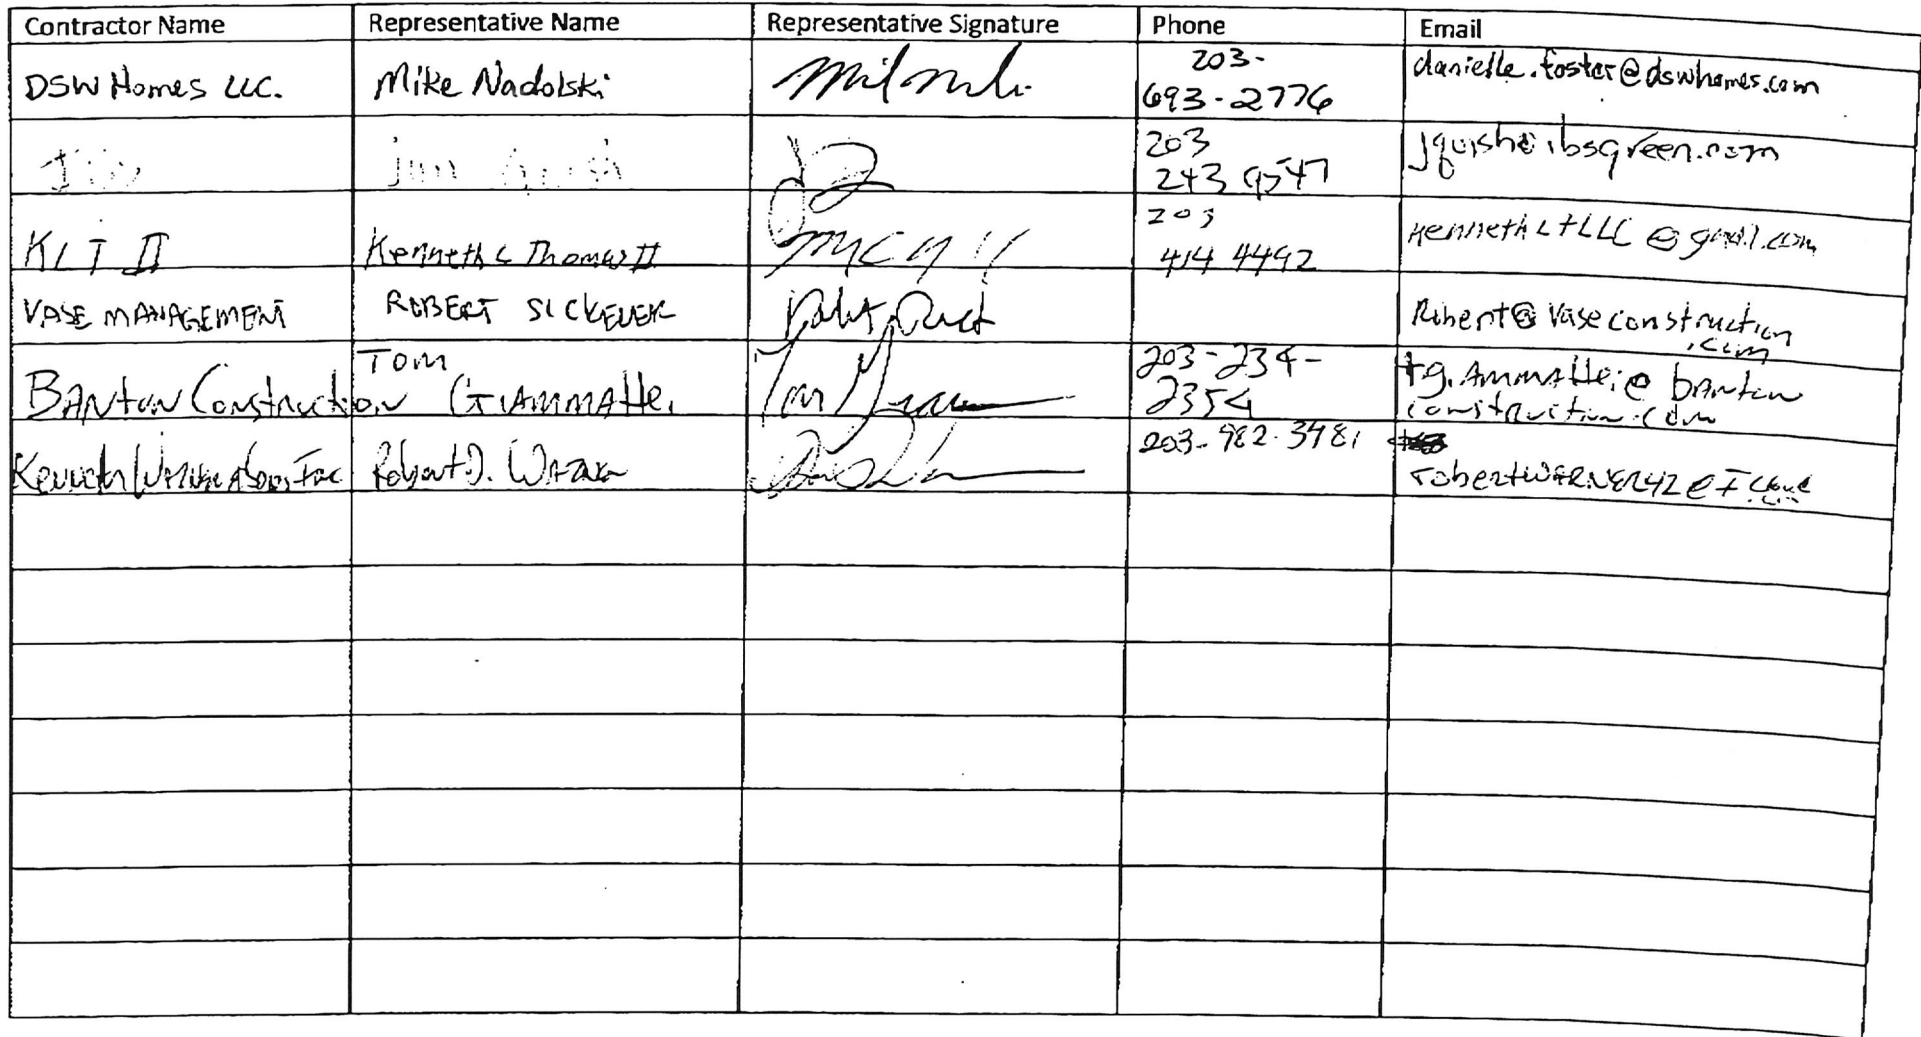 Contractor Name Representative Name Representative Signature Phone Email
DSW Homes LLC. Mike Nadolski 203- 693-2776 danielle.foster@dswhomes.com
Jim 203 243 9547
KLT II Kenneth L Thomas II 203 414 4492 KennethLTLLC@gmail.com
VASE MANAGEMENT ROBERT Robert@Vaseconstruction.com
BANton Construction Tom GIAMMAttei 203-234-2354 tgiAmmAttei@bantonconstruction.com
Robert D. 203-982-3481 robertWARNER42@Icloud